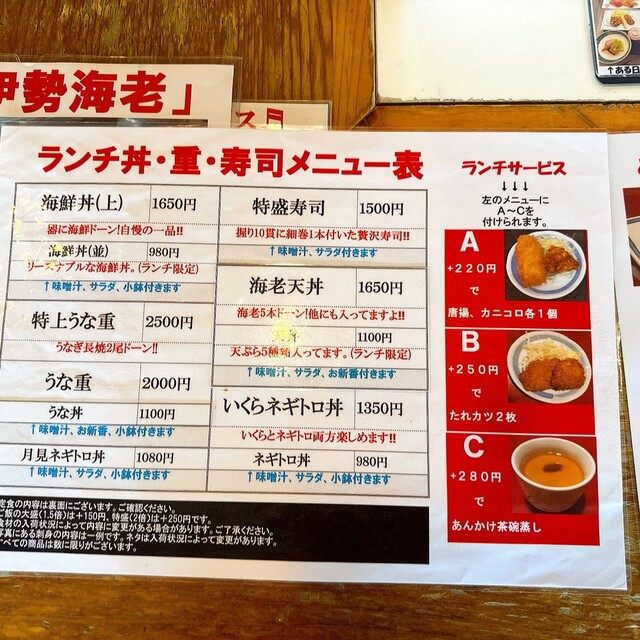 伊勢海老」
↑ある日
ランチ丼・重・寿司メニュー表
海鮮丼(上) 1650円
器に海鮮ドーン!自慢の一品!!
海鮮丼(並) 980円
リーズナブルな海鮮丼。(ランチ限定)
↑味噌汁、サラダ、小鉢付きます
特上うな重 2500円
うなぎ長焼2尾ドーン!!
うな重 2000円
うな丼 1100円
↑味噌汁、お新香、小鉢付きます
月見ネギトロ丼 1080円
↑味噌汁、サラダ、小鉢付きます
特盛寿司 1500円
握り10貫に細巻1本付いた贅沢寿司!!
↑味噌汁、サラダ付きます
海老天丼 1650円
海老5本ドーン!他にも入ってますよ!!
1100円
天ぷら5種類入ってます。(ランチ限定)
↑味噌汁、サラダ、お新香付きます
いくらネギトロ丼 1350円
いくらとネギトロ両方楽しめます!!
ネギトロ丼 980円
↑味噌汁、サラダ、小鉢付きます
定食の内容は裏面にございます。ご確認ください。
ご飯の大盛(1.5倍)は+150円、特盛(2倍)は+250円です。
食材の入荷状況によって内容に変更がある場合があります。ご了承ください。
写真にある刺身の内容は一例です。ネタは入荷状況によって変更があります。
すべての商品は数に限りがございます。
ランチサービス
↓↓↓
左のメニューに
A~Cを
付けられます。
A
+220円
で
唐揚、カニコロ各1個
B
+250円
で
たれカツ2枚
C
+280円
で
あんかけ茶碗蒸し